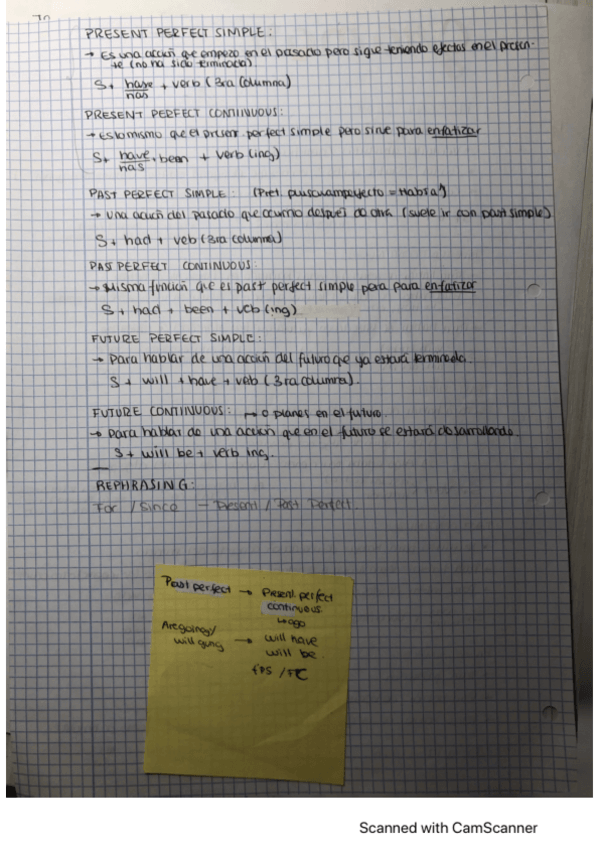 PRESENT PERFECT SIMPLE:
→ Es una acción que empezo en el pasado pero sigue teniendo efectos en el presen-
te (no ha sido terminada)
S+ have/has + verb (3ra Columna)
PRESENT PERFECT CONTINUOUS:
→ Es lo mismo que el present perfect simple pero sirve para enfatizar
S+ have/has + been + verb (ing)
PAST PERFECT SIMPLE: (Pret. pluscuamperfecto = Había)
→ Una acción del pasado que ocurrio después de otra (suele ir con past simple)
S + had + veb (3ra columna)
PAST PERFECT CONTINUOUS:
→ Misma función que es past perfect simple pera para enfatizar
S + had + been + veb (ing)
FUTURE PERFECT SIMPLE:
→ Para hablar de una acción del futuro que ya estará terminada.
S + will + have + veb (3ra columna).
FUTURE CONTINUOUS: → o planes en el futuro.
→ para hablar de una acción que en el futuro se estará desarrollando.
S + will be + verb ing.
REPHRASING:
For / Since — Present / Past Perfect.
Past perfect → Present. perfect
continueus
↳ ago
Are going/
will gung → will have
will be
FPS / FC
Scanned with CamScanner